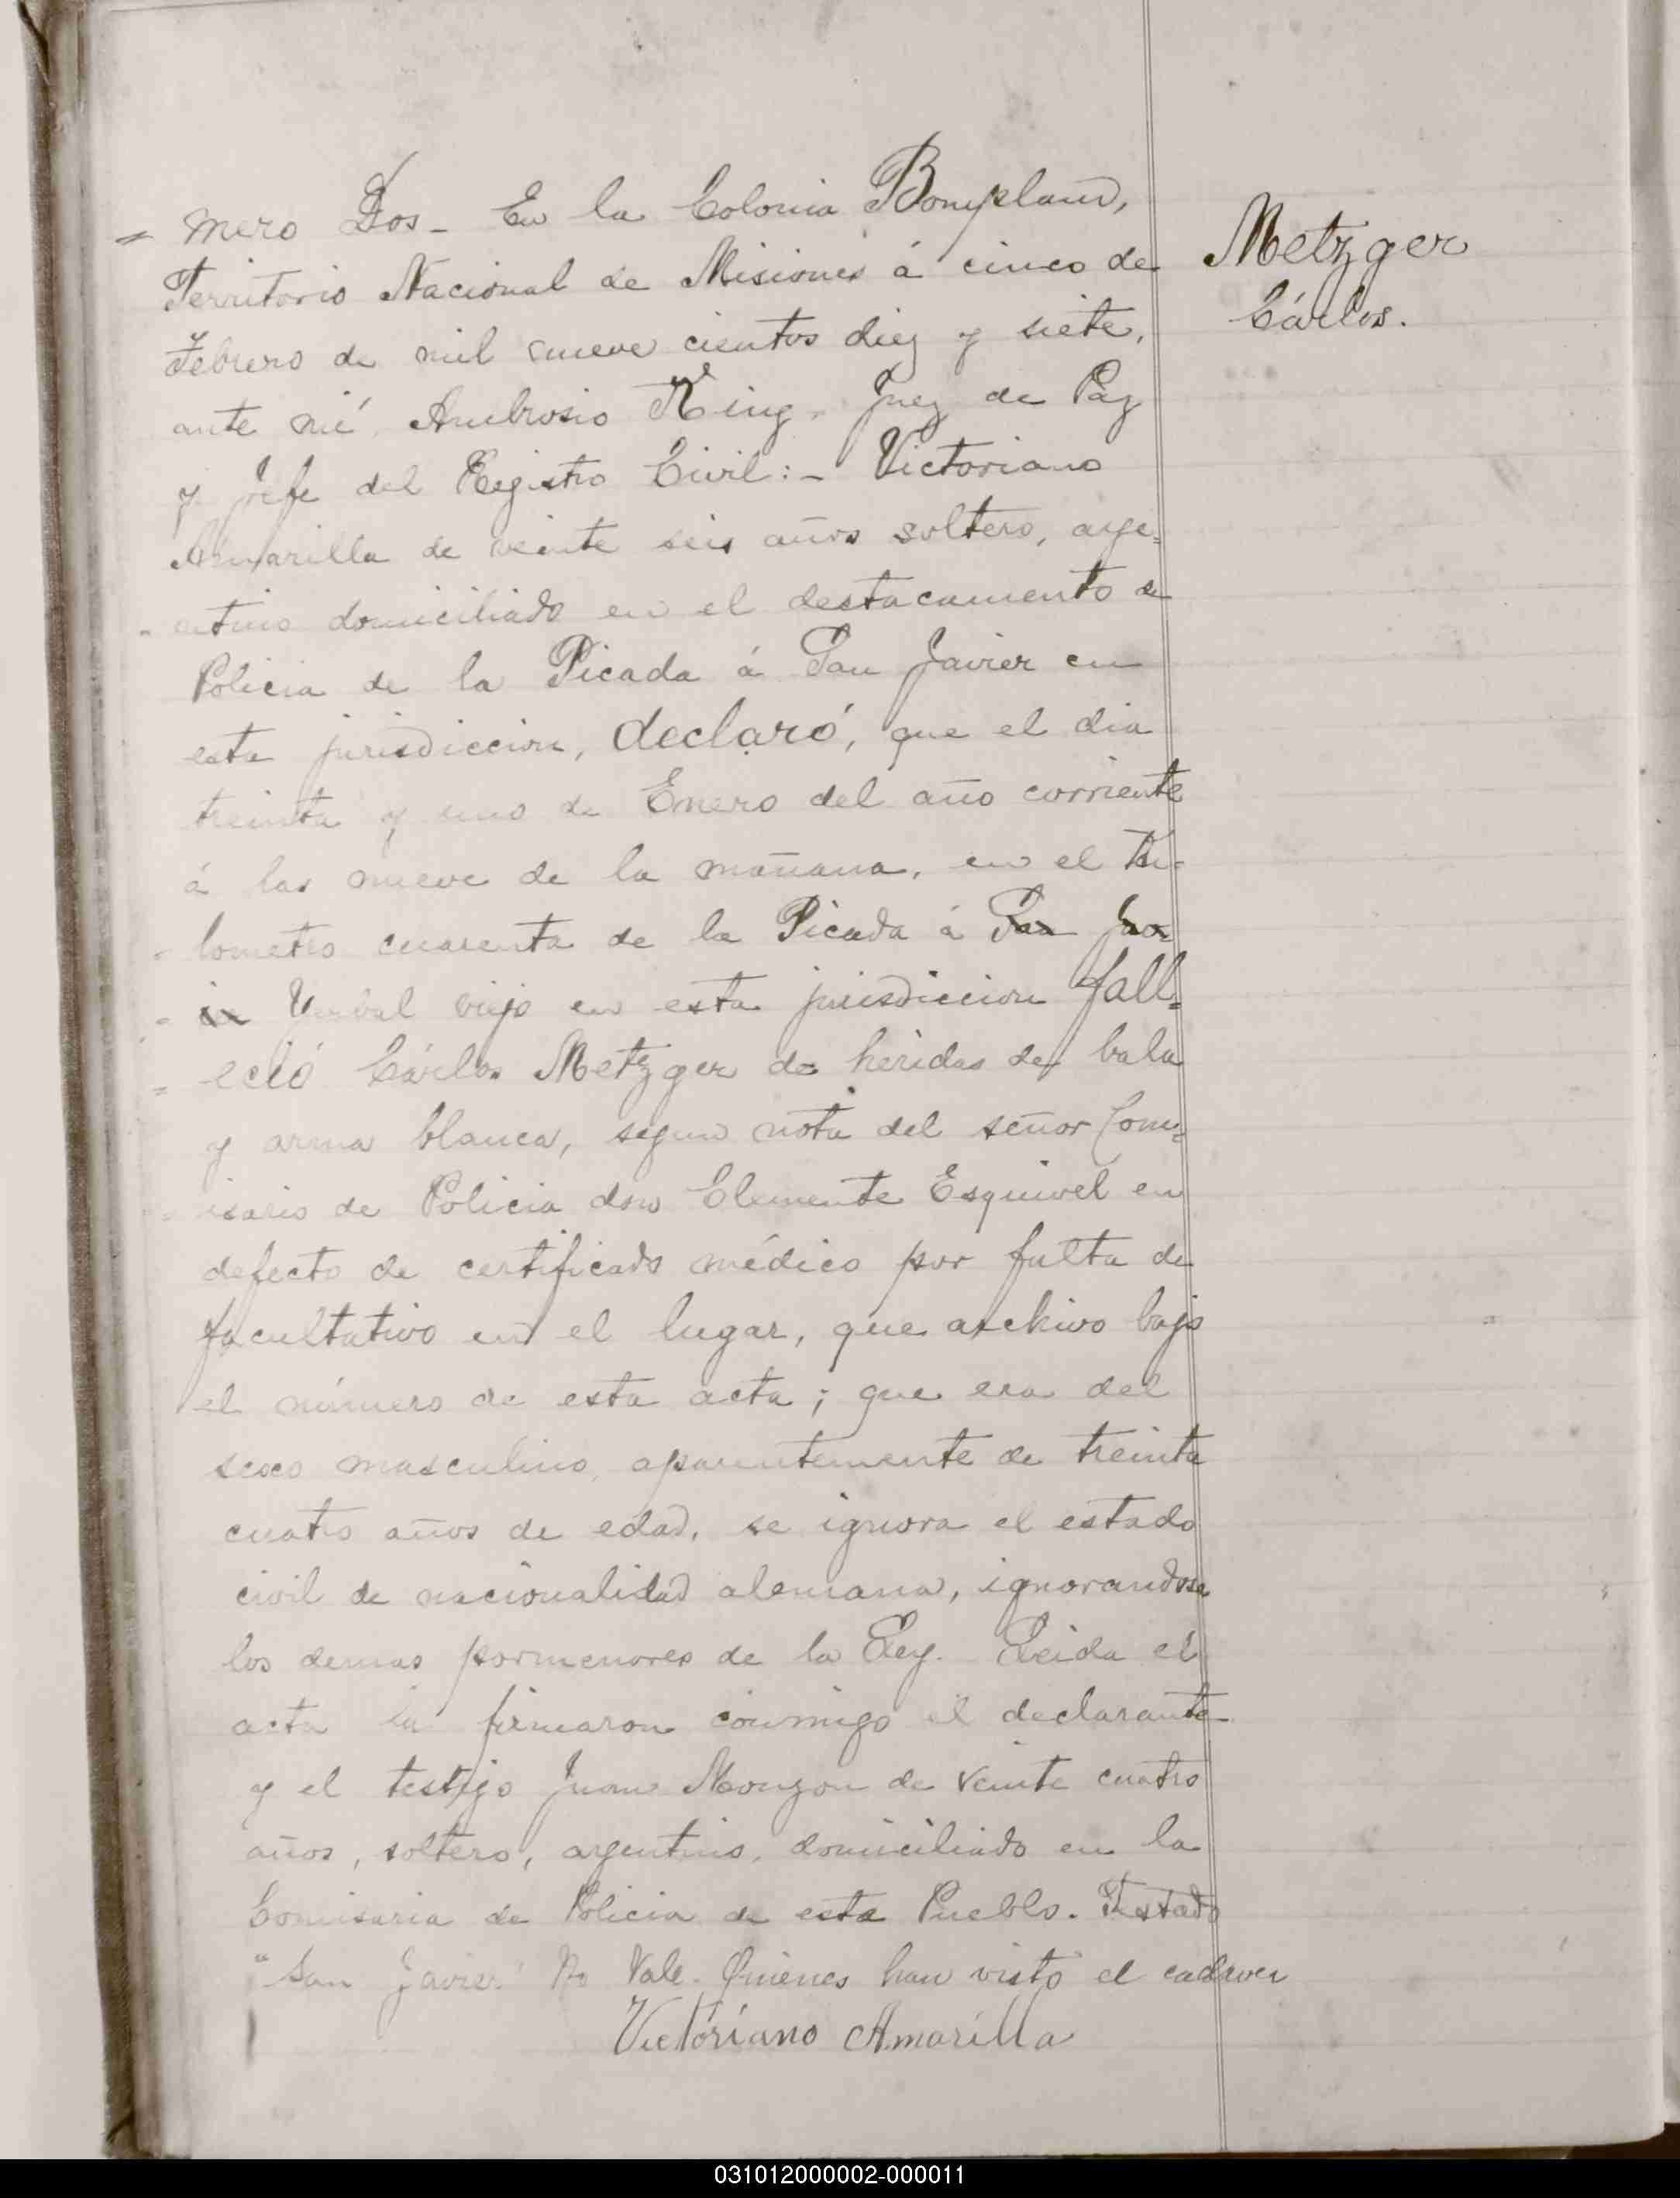 = mero Dos - En la Colonia Bompland,
Territorio Nacional de Misiones á cinco de
Febrero de mil nueve cientos diez y siete,
ante mí, Ambrosio King, Juez de Paz
y Jefe del Registro Civil: - Victoriano
Amarilla de veinte seis años soltero, arge=
= ntino domiciliado en el destacamento de
Policia de la Picada á San Javier en
esta jurisdiccion, declaró, que el dia
treinta y uno de Enero del año corriente
á las nueve de la mañana, en el Ki=
= lometro cuarenta de la Picada á San Jav
= ier Yerbal viejo en esta jurisdiccion fall=
= eció Cárlos Metzger de heridas de bala
y arma blanca, segun nota del señor Com=
= isario de Policia don Clemente Esquivel en
defecto de certificado médico por falta de
facultativo en el lugar, que archivo bajo
el número de esta acta; que era del
sexo masculino, aparentemente de treinta
cuatro años de edad, se ignora el estado
civil de nacionalidad alemana, ignorandose
los demas pormenores de la Ley. Leida el
acta la firmaron conmigo el declarante
y el testigo Juan Monzon de veinte cuatro
años, soltero, argentino, domiciliado en la
Comisaria de Policia de este Pueblo. Testado
"San Javier" No Vale. Quienes han visto el cadaver
Victoriano Amarilla
Metzger
Cárlos.
031012000002-000011